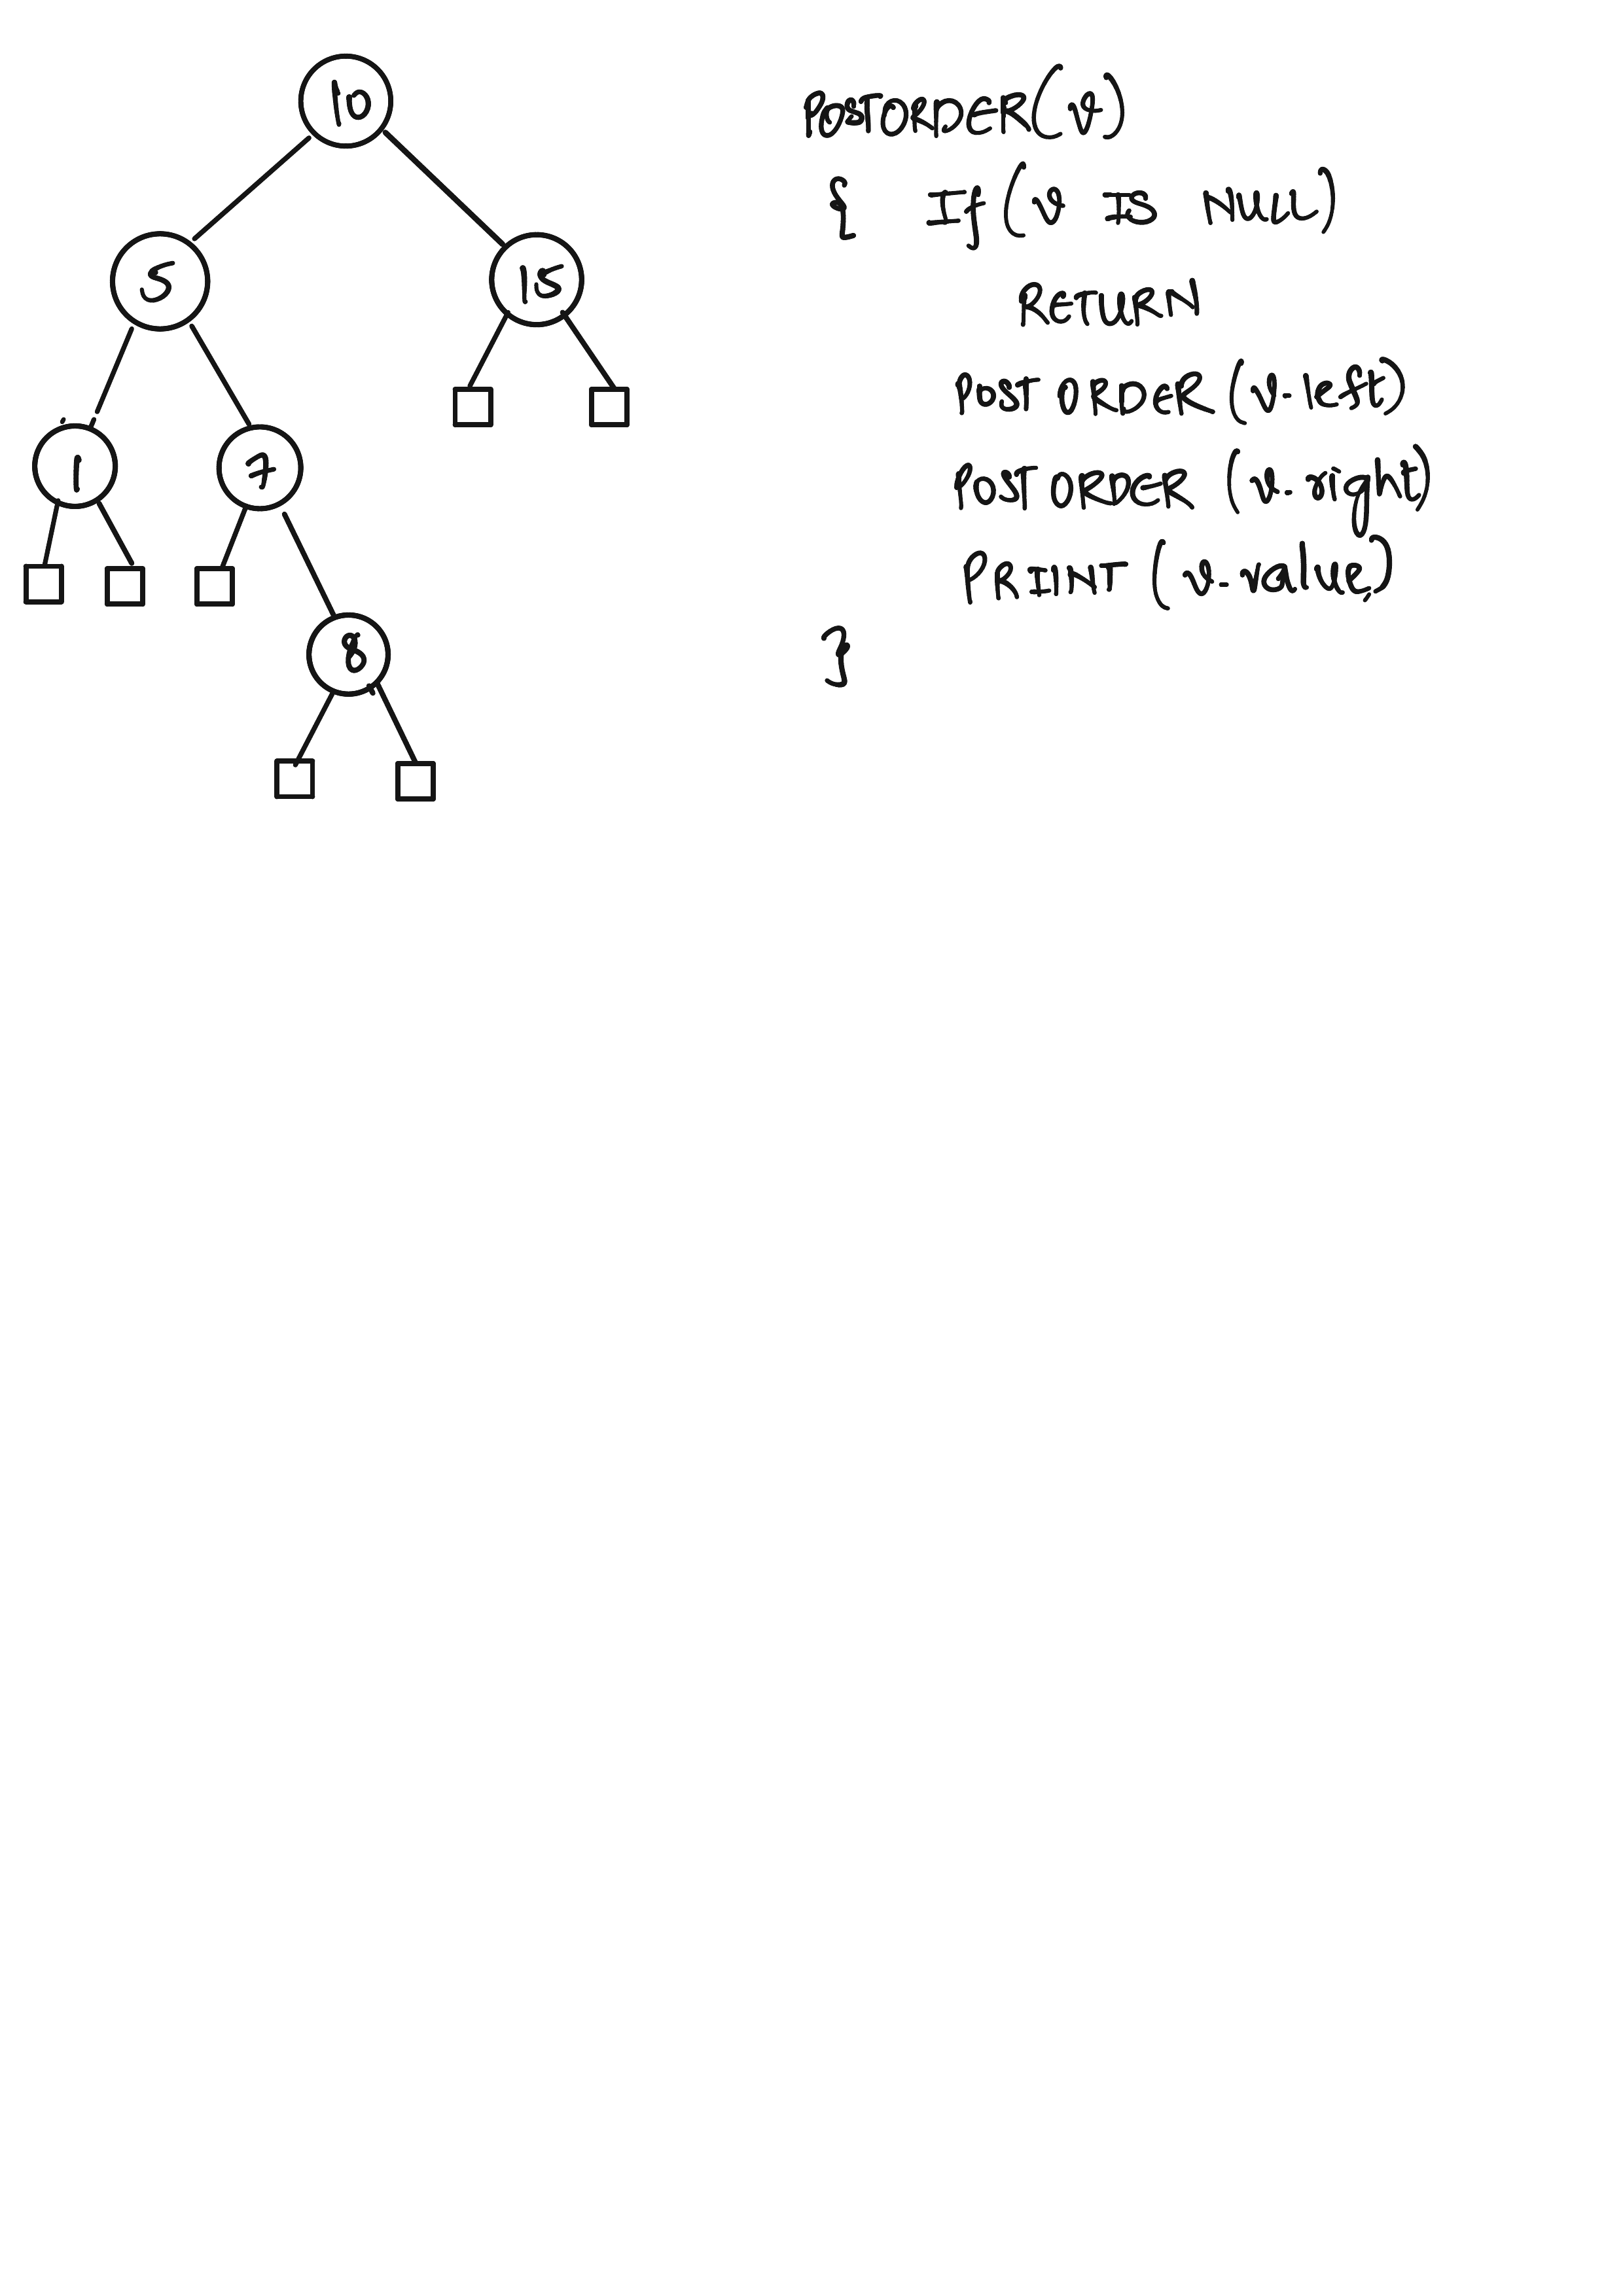 10
5
15
1
7
8
POSTORDER(v)
{ If (v IS NULL)
RETURN
POST ORDER (v.left)
POST ORDER (v.right)
PRIINT (v.value)
}